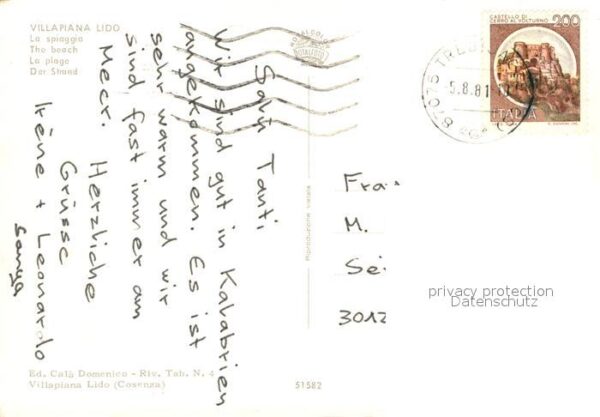 VILLAPIANA LIDO
La spiaggia
The beach
La plage
Der Strand
ROTALCOLOR
ROTALFOTO
CASTELLO DI
CERRO AL VOLTURNO
200
ITALIA
87075 TREBI
5.8.81
Salü Tanti
Wir sind gut in Kalabrien
angekommen. Es ist
sehr warm und wir
sind fast immer am
Meer.
Herzliche
Grüsse
Irène + Leonardo
Sanya
Fra
M.
Se
3012
privacy protection
Datenschutz
Riproduzione vietata
Ed. Calà Domenico - Riv. Tab. N. 4
Villapiana Lido (Cosenza)
51582